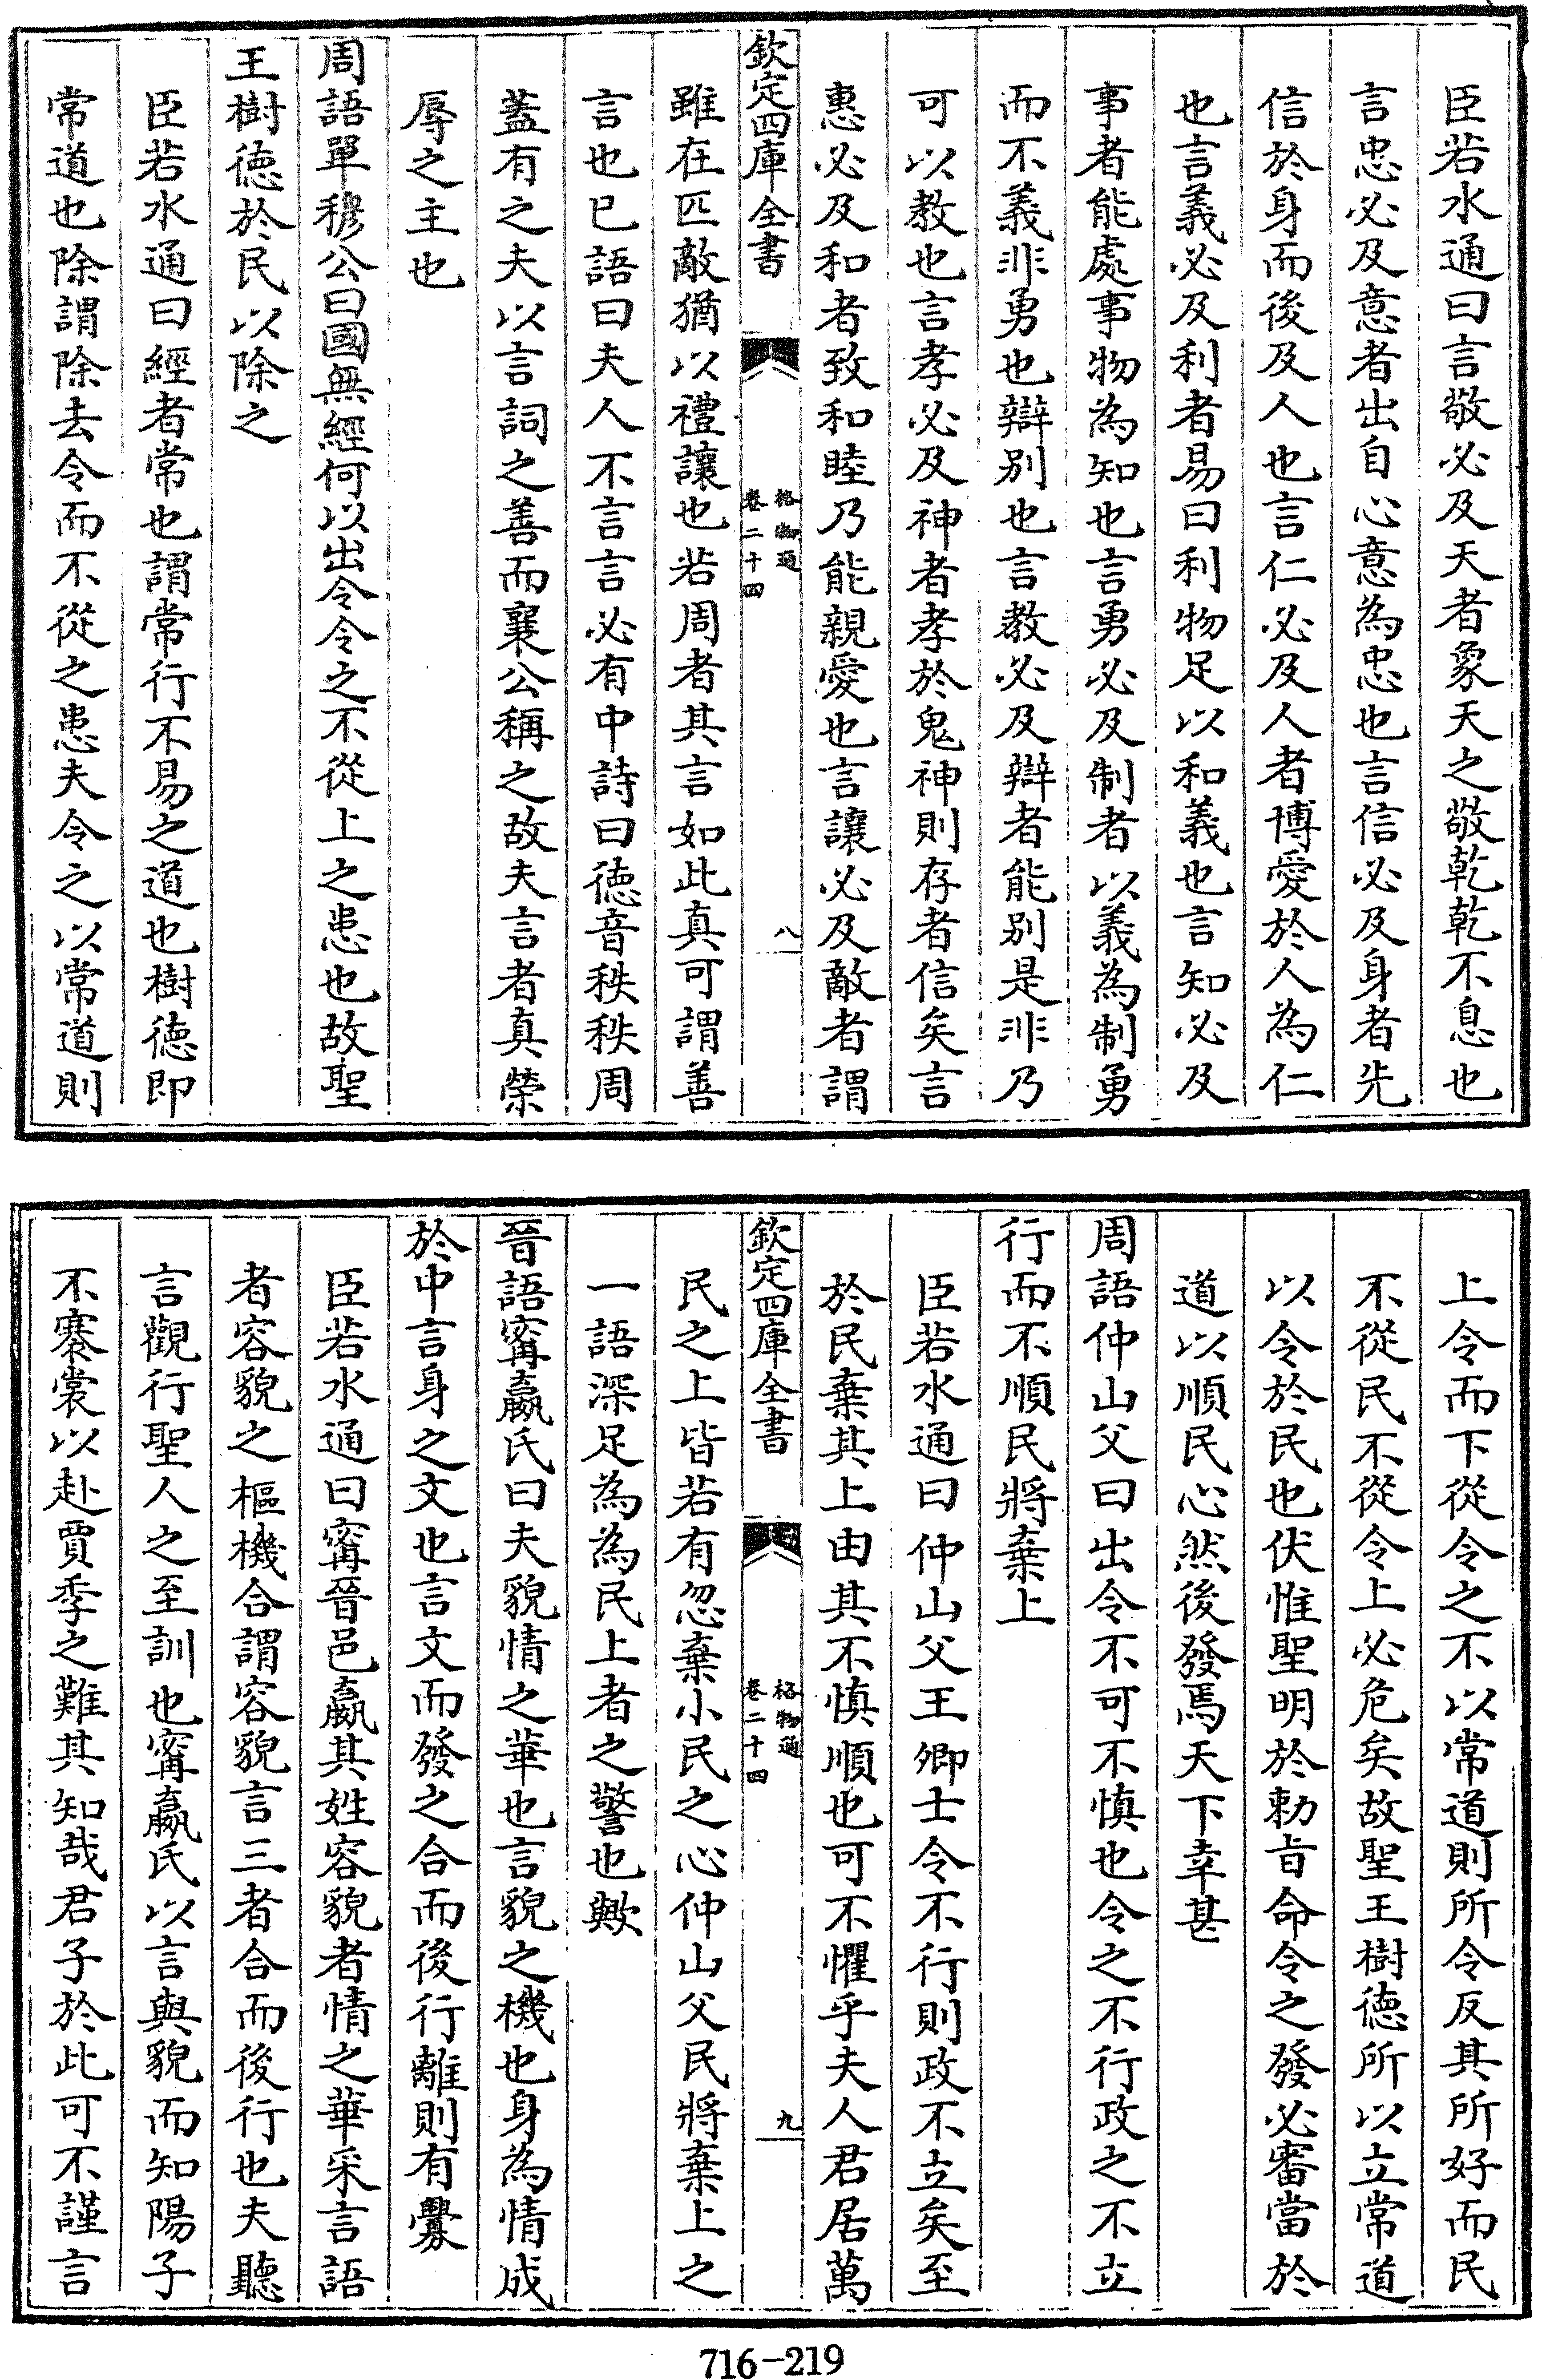 臣若水通曰言敬必及天者象天之敬乾乾不息也
言忠必及意者出自心意為忠也言信必及身者先
信於身而後及人也言仁必及人者博愛於人為仁
也言義必及利者易曰利物足以和義也言知必及
事者能處事物為知也言勇必及制者以義為制勇
而不義非勇也辯别也言教必及辯者能别是非乃
可以教也言孝必及神者孝於鬼神則存者信矣言
惠必及和者致和睦乃能親愛也言讓必及敵者謂
欽定四庫全書
格物通
卷二十四
八
雖在匹敵猶以禮讓也若周者其言如此真可謂善
言也已語曰夫人不言言必有中詩曰德音秩秩周
蓋有之夫以言詞之善而襄公稱之故夫言者真榮
辱之主也
周語單穆公曰國無經何以出令令之不從上之患也故聖
王樹德於民以除之
臣若水通曰經者常也謂常行不易之道也樹德即
常道也除謂除去令而不從之患夫令之以常道則
上令而下從令之不以常道則所令反其所好而民
不從民不從令上必危矣故聖王樹德所以立常道
以令於民也伏惟聖明於勅旨命令之發必審當於
道以順民心然後發焉天下幸甚
周語仲山父曰出令不可不慎也令之不行政之不立
行而不順民將棄上
臣若水通曰仲山父王卿士令不行則政不立矣至
於民棄其上由其不慎順也可不懼乎夫人君居萬
欽定四庫全書
格物通
卷二十四
九
民之上皆若有忽棄小民之心仲山父民將棄上之
一語深足為為民上者之警也歟
晉語甯嬴氏曰夫貌情之華也言貌之機也身為情成
於中言身之文也言文而發之合而後行離則有釁
臣若水通曰甯晉邑嬴其姓容貌者情之華采言語
者容貌之樞機合謂容貌言三者合而後行也夫聽
言觀行聖人之至訓也甯嬴氏以言與貌而知陽子
不褰裳以赴賈季之難其知哉君子於此可不謹言
716-219